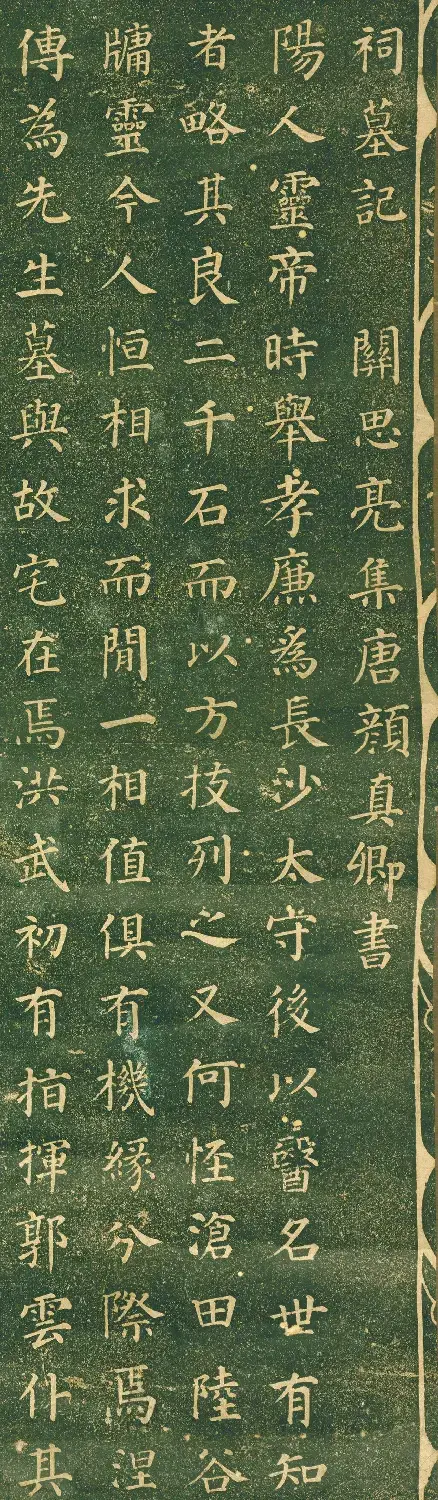 祠墓記　關思亮集唐顏真卿書
陽人靈帝時舉孝廉為長沙太守後以醫名世有知
者略其良二千石而以方技列之又何怪滄田陸谷
牗靈今人恒相求而閒一相值俱有機緣分際焉涅
傳為先生墓與故宅在焉洪武初有指揮郭雲仆其